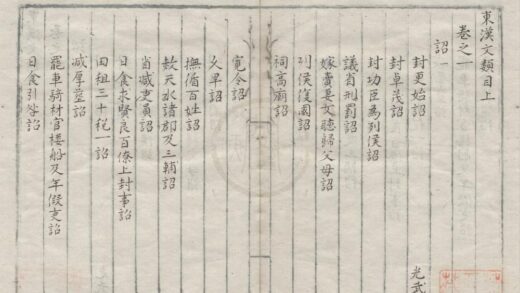 東漢文類目上
卷之一
詔一
封更始詔 光武
封卓茂詔
封功臣為列侯詔
議省刑罰詔
嫁賣妻女聽歸父母詔
列侯復國詔
祠高廟詔
寬令詔
久旱詔
撫循百姓詔
赦天水諸郡及三輔詔
省減吏員詔
日食求賢良百僚上封事詔
田租三十稅一詔
減厚塟詔
罷車騎材官樓船及年假吏詔
日食引咎詔